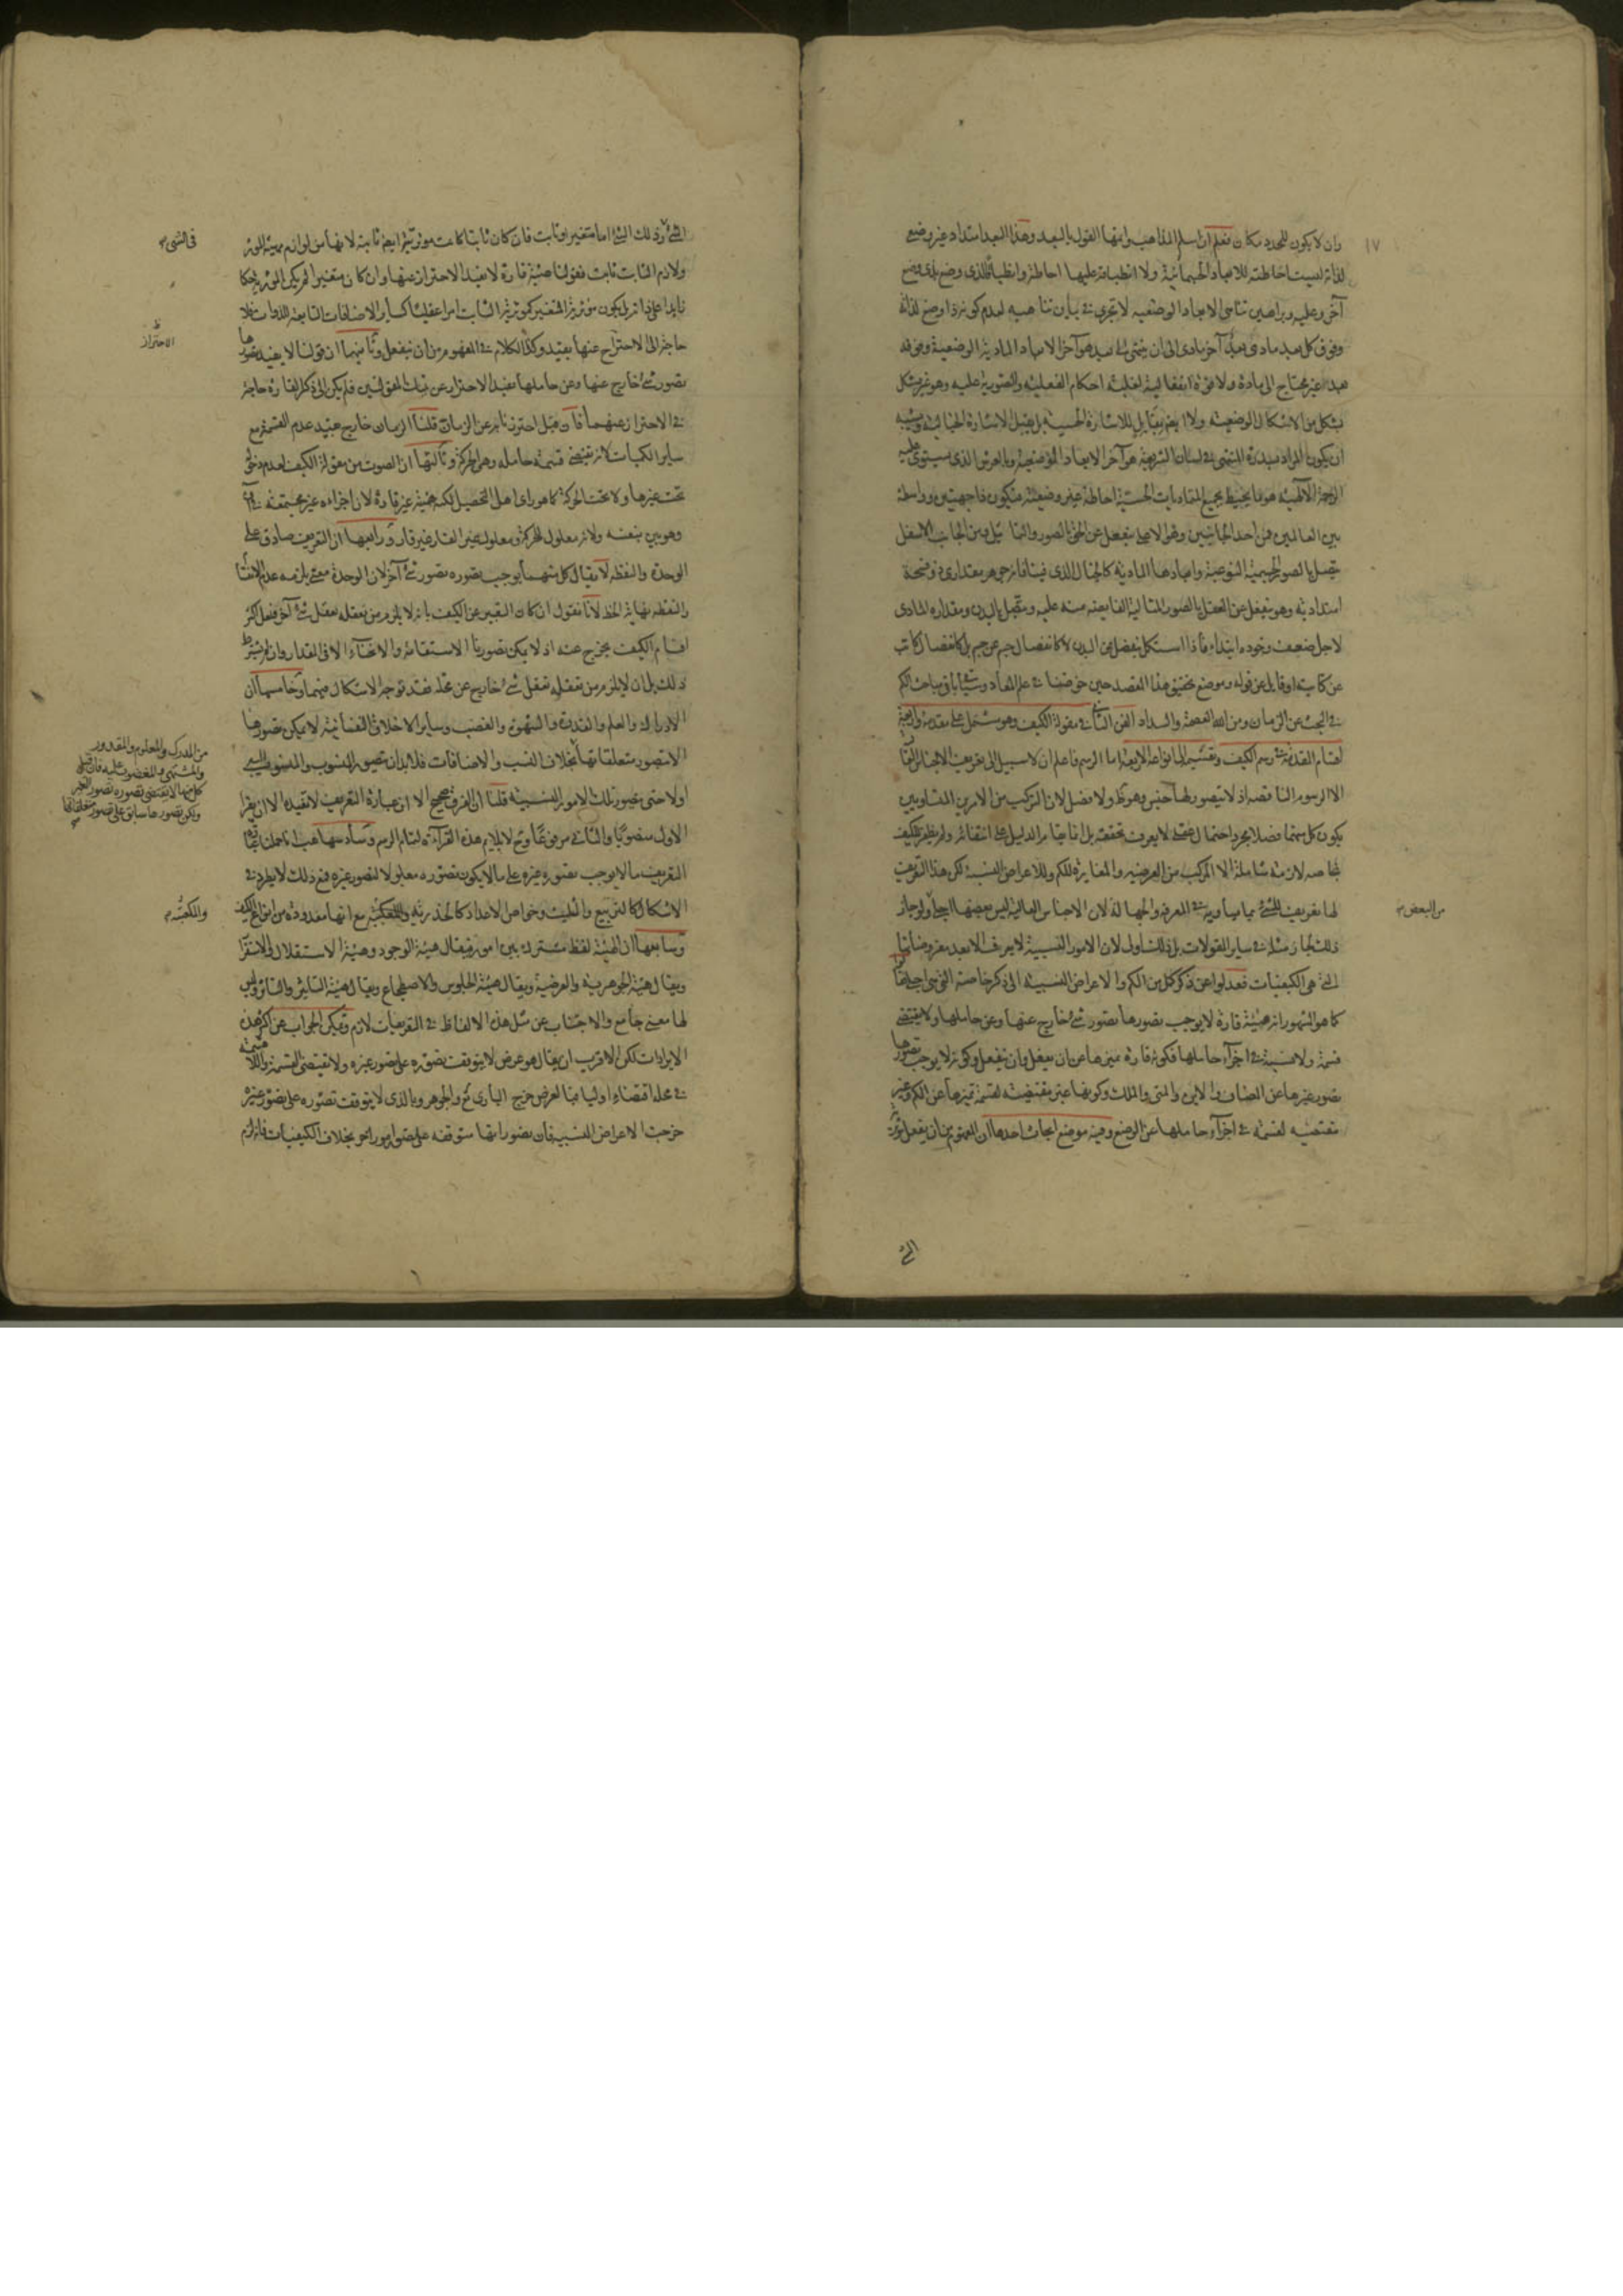 ١٧
وان لا يكون للمحدد مكان فعلم ان اسلم المذاهب وامتنها القول بالبعد وهذا البعد امتداد غير وضعي
لذاته ليست احاطته للابعاد الجسمانية ولا انطباقه عليها احاطة وانطباقا لذى وضع بذى وضع
آخر وعليه وبراهين تناهى الابعاد الوضعيه لا تجرى فى بيان تناهيه لعدم كونه ذا وضع لذاته
وفوق كل بعد مادى بعد آخر مادى الى ان ينتهى الى بعد هو آخر الابعاد المادية الوضعية وفوقه
بعد غير محتاج الى مادة ولا قوة انفعالية لغلبة احكام الفعلية والصورية عليه وهو غير متشكل
بشكل من الاشكال الوضعية ولا ايضا بقابل للاشارة الحسية بل يقبل الاشارة الخيالية ويشبه
ان يكون المراد بسدرة المنتهى فى لسان الشريعة هو آخر الابعاد الوضعية وبالعرش الذى يستوى عليه
الرحمة الالهية هو ما يحيط بجميع المتماديات الحسية احاطة غير وضعية فيكون ذا جهتين وواسطة
بين العالمين فمن احد الجانبين وهو الاعلى ينفعل عن الحق بالصور والتماثيل ومن الجانب الاسفل
يتصل بالصور الجسمية النوعية وابعادها المادية كالخيال الذى فينا فانه جوهر مقدارى
امتداديه وهو ينفعل عن العقل بالصور المثالية الفايضة منه عليه ويتصل بالبدن ومقداره المادى
لاجل ضعف وجوده ابتداء فاذا استكمل ينفصل عن البدن لا كانفصال جسم عن جسم بل كانفصال كاتب
عن كتابته او قايل عن قوله وموضع تحقيق هذا المقصد حين خوضنا فى علم المعاد وسيأتى باقى مباحث الكم
فى البحث عن الزمان ومن الله العصمة والسداد الفن الثانى فى مقولة الكيف وهو مشتمل على مقدمة واربعة
اقسام المقدمة فى رسم الكيف وتقسيمه الى انواعه الاربعة اما الرسم فاعلم ان لا سبيل الى تعريف الاجناس العالية
الا الرسوم الناقصة اذ لا يتصور لها جنس وهو ظ ولا فصل لان التركيب من الامرين المتساويين
يكون كل منهما فصلا مجرد احتمال عقلى لا يعرف تحققه بل انما يقام الدليل على انتفائه ولم يظفر للكيف
بخاصة لازمة شاملة الا المركب من العرضيه والمغايرة للكم وللاعراض النسبية لكن هذا التعريف
لها تعريف للشئ بما يساويه فى المعرفة والجهالة لان الاجناس العالية ليس بعضها اجلى ولو جاز
من البعض
ذلك لجاز مثله فى ساير المقولات بل ذلك اولى لان الامور النسبية لا يعرف الا بعد معروضاتها
التى هى الكيفيات فعدلوا عن ذكر كل من الكم والاعراض النسبية الى ذكر خاصته التى هى اجلى فقالوا
كما هو المشهور انه هيئة قارة لا يوجب تصورها تصور شئ خارج عنها وعن حاملها ولا يقتضى
قسمة ولا نسبة فى اجزاء حاملها فكونه قارة يميزها عن ان يفعل وان ينفعل وكونه لا يوجب تصورها
تصور غيرها عن المضاف والاين والمتى والملك وكونها غير مقتضية لقسمة تميزها عن الكم وغير
مقتضيه لنسبة فى اجزاء حاملها عن الوضع وفيه موضع ابحاث احدها ان المفهوم من ان يفعل مؤثرية
الشئ
الشئ وذلك الشئ اما متغير او ثابت فان كان ثابتا كانت مؤثريته ايضا ثابتة لانها من لوازم مهية المؤثر
فى الشئ
ولازم الثابت ثابت فقولنا هيئة قارة لا يفيد الاحتراز عنها وان كان متغيرا لم يكن المؤثرية حكما
زايدا على ذاته بل يكون مؤثرية المتغير كمؤثرية الثابت امرا عقليا كساير الاضافات التابعة للذوات فلا
حاجة الى الاحتراز عنها بقيد وكذا الكلام فى المفهوم من ان ينفعل وثانيهما ان قولنا لا يفيد تصورها
ظ
الاحتراز
تصور شئ خارج عنها وعن حاملها يفيد الاحتراز عن تينك المقولتين فلم يكن الى ذكر القارة حاجة
فى الاحتراز عنهما فان قيل احترزنا به عن الزمان قلنا الزمان خارج بقيد عدم القسمة مع
ساير الكميات لانه يقتضى قسمة حامله وهو الحركة وثالثها ان الصوت من مقولة الكيف لعدم دخوله
تحت غيرها ولا تحت الحركة كما هو راى اهل التحصيل لكنه هيئة غير قارة لان اجزاءه غير مجتمعة فى آن
وهو بين بنفسه ولانه معلول للحركة ومعلول غير القار غير قار ورابعها ان التعريف صادق على
الوحدة والنقطة لا يقال كل منهما يوجب تصوره تصور شئ آخر لان الوحدة معنى يلزمه عدم الانقسام
والنقطة نهاية الخط لانا نقول ان كان التعبير عن الكيف بانه لا يلزم من تعقله تعقل شئ آخر فعل اكثر
اقسام الكيف يخرج عنه اذ لا يمكن تصورنا الاستقامة والانحناء الا فى المقدار وان لم يشترط
ذلك بل ان لا يلزم من تعقله تعقل شئ خارج عن محله فقد توجه الاشكال فيهما وخامسها ان
الادراك والعلم والقدرة والشهوة والغضب وساير الاخلاق النفسانية لا يمكن تصورها
الا بتصور متعلقاتها بخلاف النسب والاضافات فلا بد ان يتصور المنسوب والمنسوب اليه
من المدرك والمعلوم والمقدور
والمشتهى والمغضوب عليه فان قيل
كل منها لا يقتضى تصوره تصور الغير
ولكن تصورها سابق على تصور متعلقاتها
اولا حتى يتصور تلك الامور النسبية قلنا ان الفرق صحيح الا ان عبارة التعريف لا تفيده الا ان يقرأ
الاول منصوبا والثانى مرفوعا وح لا يلايم هذه القراءة لتمام الرسم وسادسها هب انا حملنا
التعريف ما لا يوجب تصوره غيره على ما لا يكون تصوره معلولا لتصور غيره فمع ذلك لا يطرد فى
الاشكال كالتربيع والتثليث وخواص الاعداد كالجذرية والمكعبية مع انها معدودة من انواع الكيف
والمكعبية
وسابعها ان الهيئة لفظ مشترك بين امور فيقال هيئة الوجود وهيئة الاستقلال والاستقرار
ويقال هيئة الجوهرية والعرضية ويقال هيئة الجلوس والاضطجاع ويقال هيئة التاثير والتاثر وليس
لها معنى جامع والاجتناب عن مثل هذه الالفاظ فى التعريفات لازم ويمكن الجواب عن اكثر هذه
الايرادات لكن الاقرب ان يقال هو عرض لا يتوقف تصوره على تصور غيره ولا يقتضى القسمة واللاقسمة
فى محله اقتضاء اوليا فبالعرض خرج البارى تع والجوهر وبالذى لا يتوقف تصوره على تصور غيره
خرجت الاعراض النسبية فان تصوراتها متوقفة على تصور امور اخر بخلاف الكيفيات فانه لزم